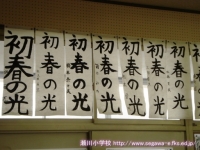 初春の光
初春の光
初春の光
初春の光
初春の光
初春の光
初春の光
瀬川小学校 http://www.segawa-e.fks.ed.jp